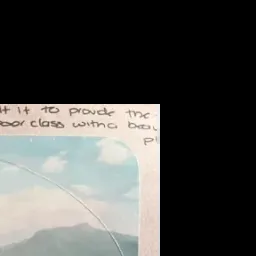 it to provide the
poor class with a
pl